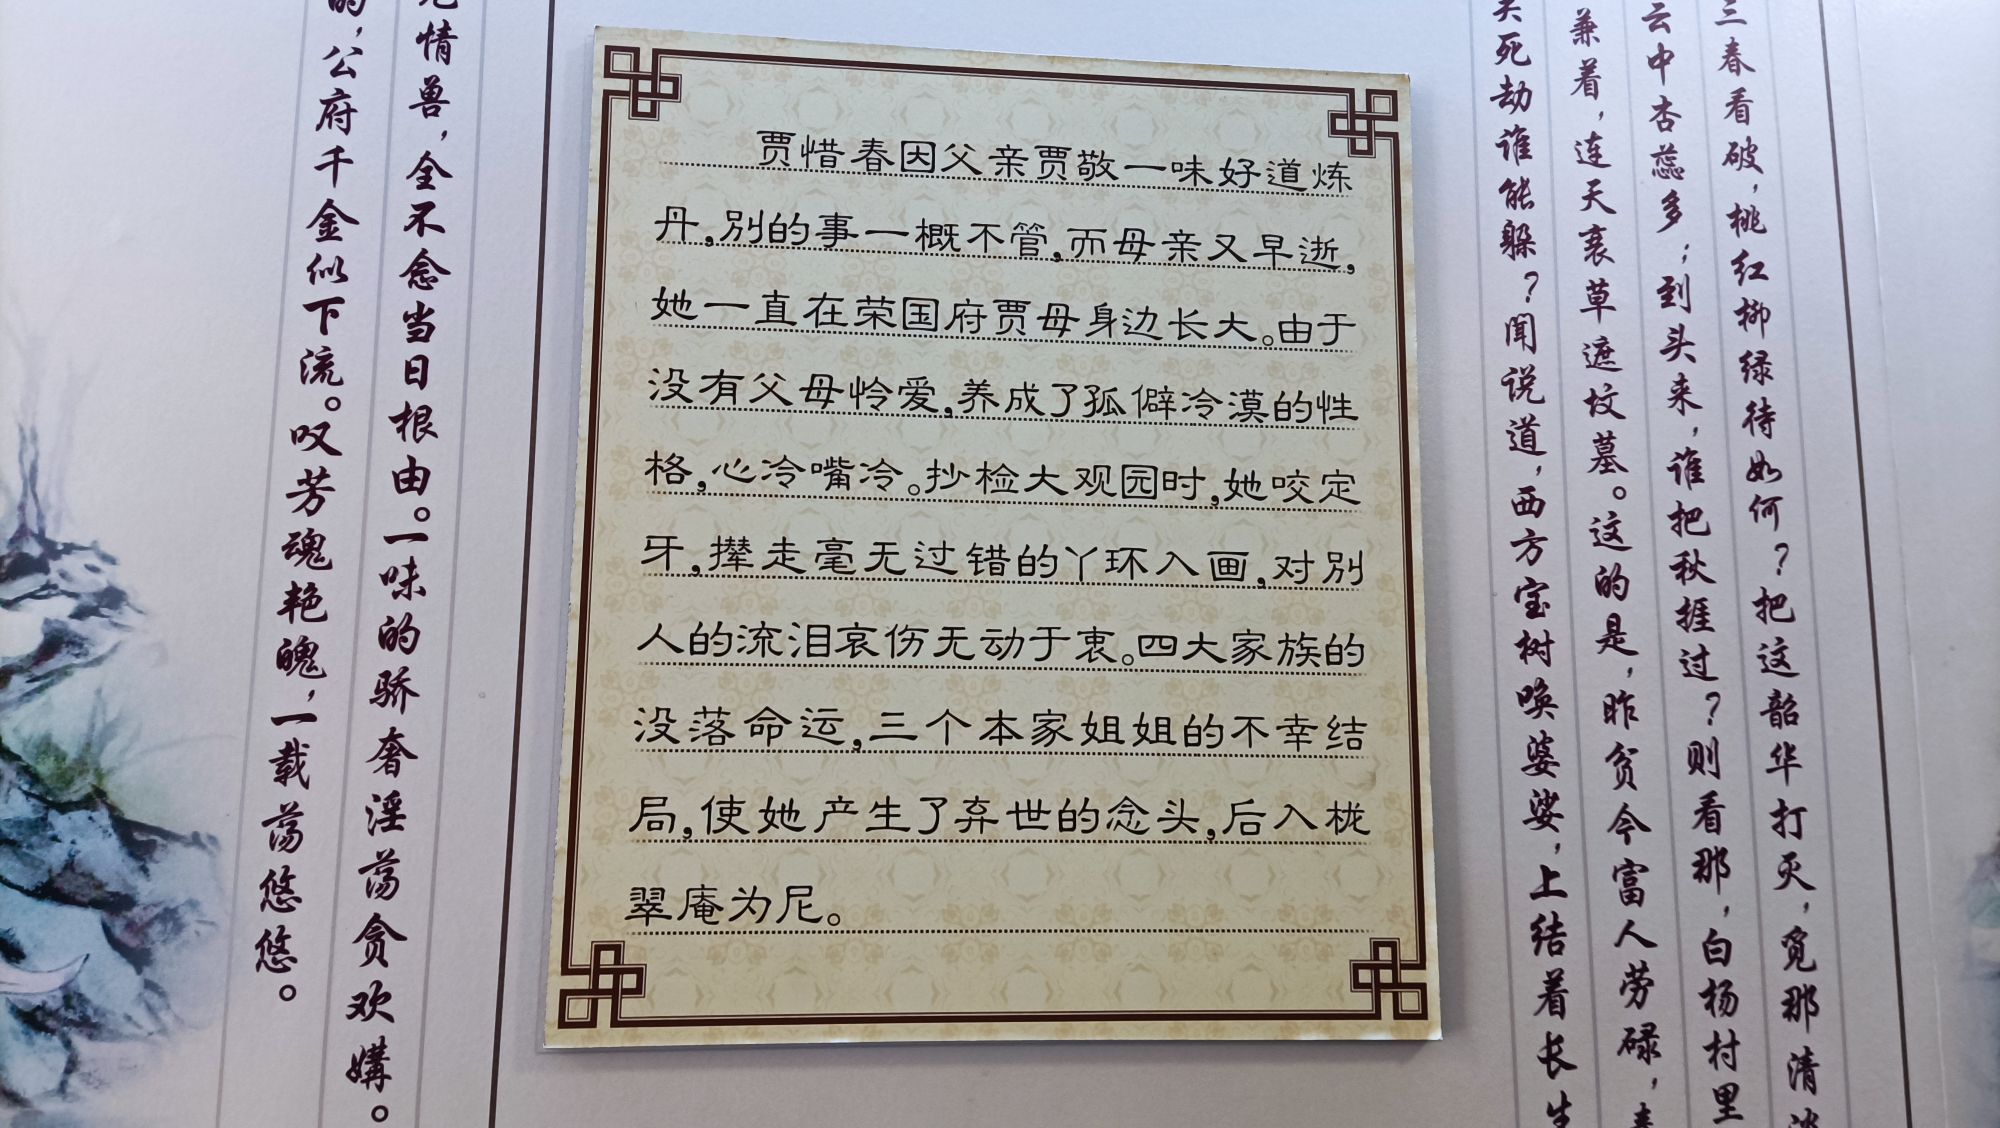 贾惜春因父亲贾敬一味好道炼
丹,别的事一概不管,而母亲又早逝,
她一直在荣国府贾母身边长大。由于
没有父母怜爱,养成了孤僻冷漠的性
格,心冷嘴冷。抄检大观园时,她咬定
牙,撵走毫无过错的丫环入画,对别
人的流泪哀伤无动于衷。四大家族的
没落命运,三个本家姐姐的不幸结
局,使她产生了弃世的念头,后入栊
翠庵为尼。
三春看破,桃红柳绿待如何?把这韶华打灭,觅那清淡
云中杏蕊多;到头来,谁把秋捱过?则看那,白杨村里
兼着,连天衰草遮坟墓。这的是,昨贫今富人劳碌,春
关死劫谁能躲?闻说道,西方宝树唤婆娑,上结着长生
情兽,全不念当日根由。一味的骄奢淫荡贪欢媾。
的,公府千金似下流。叹芳魂艳魄,一载荡悠悠。